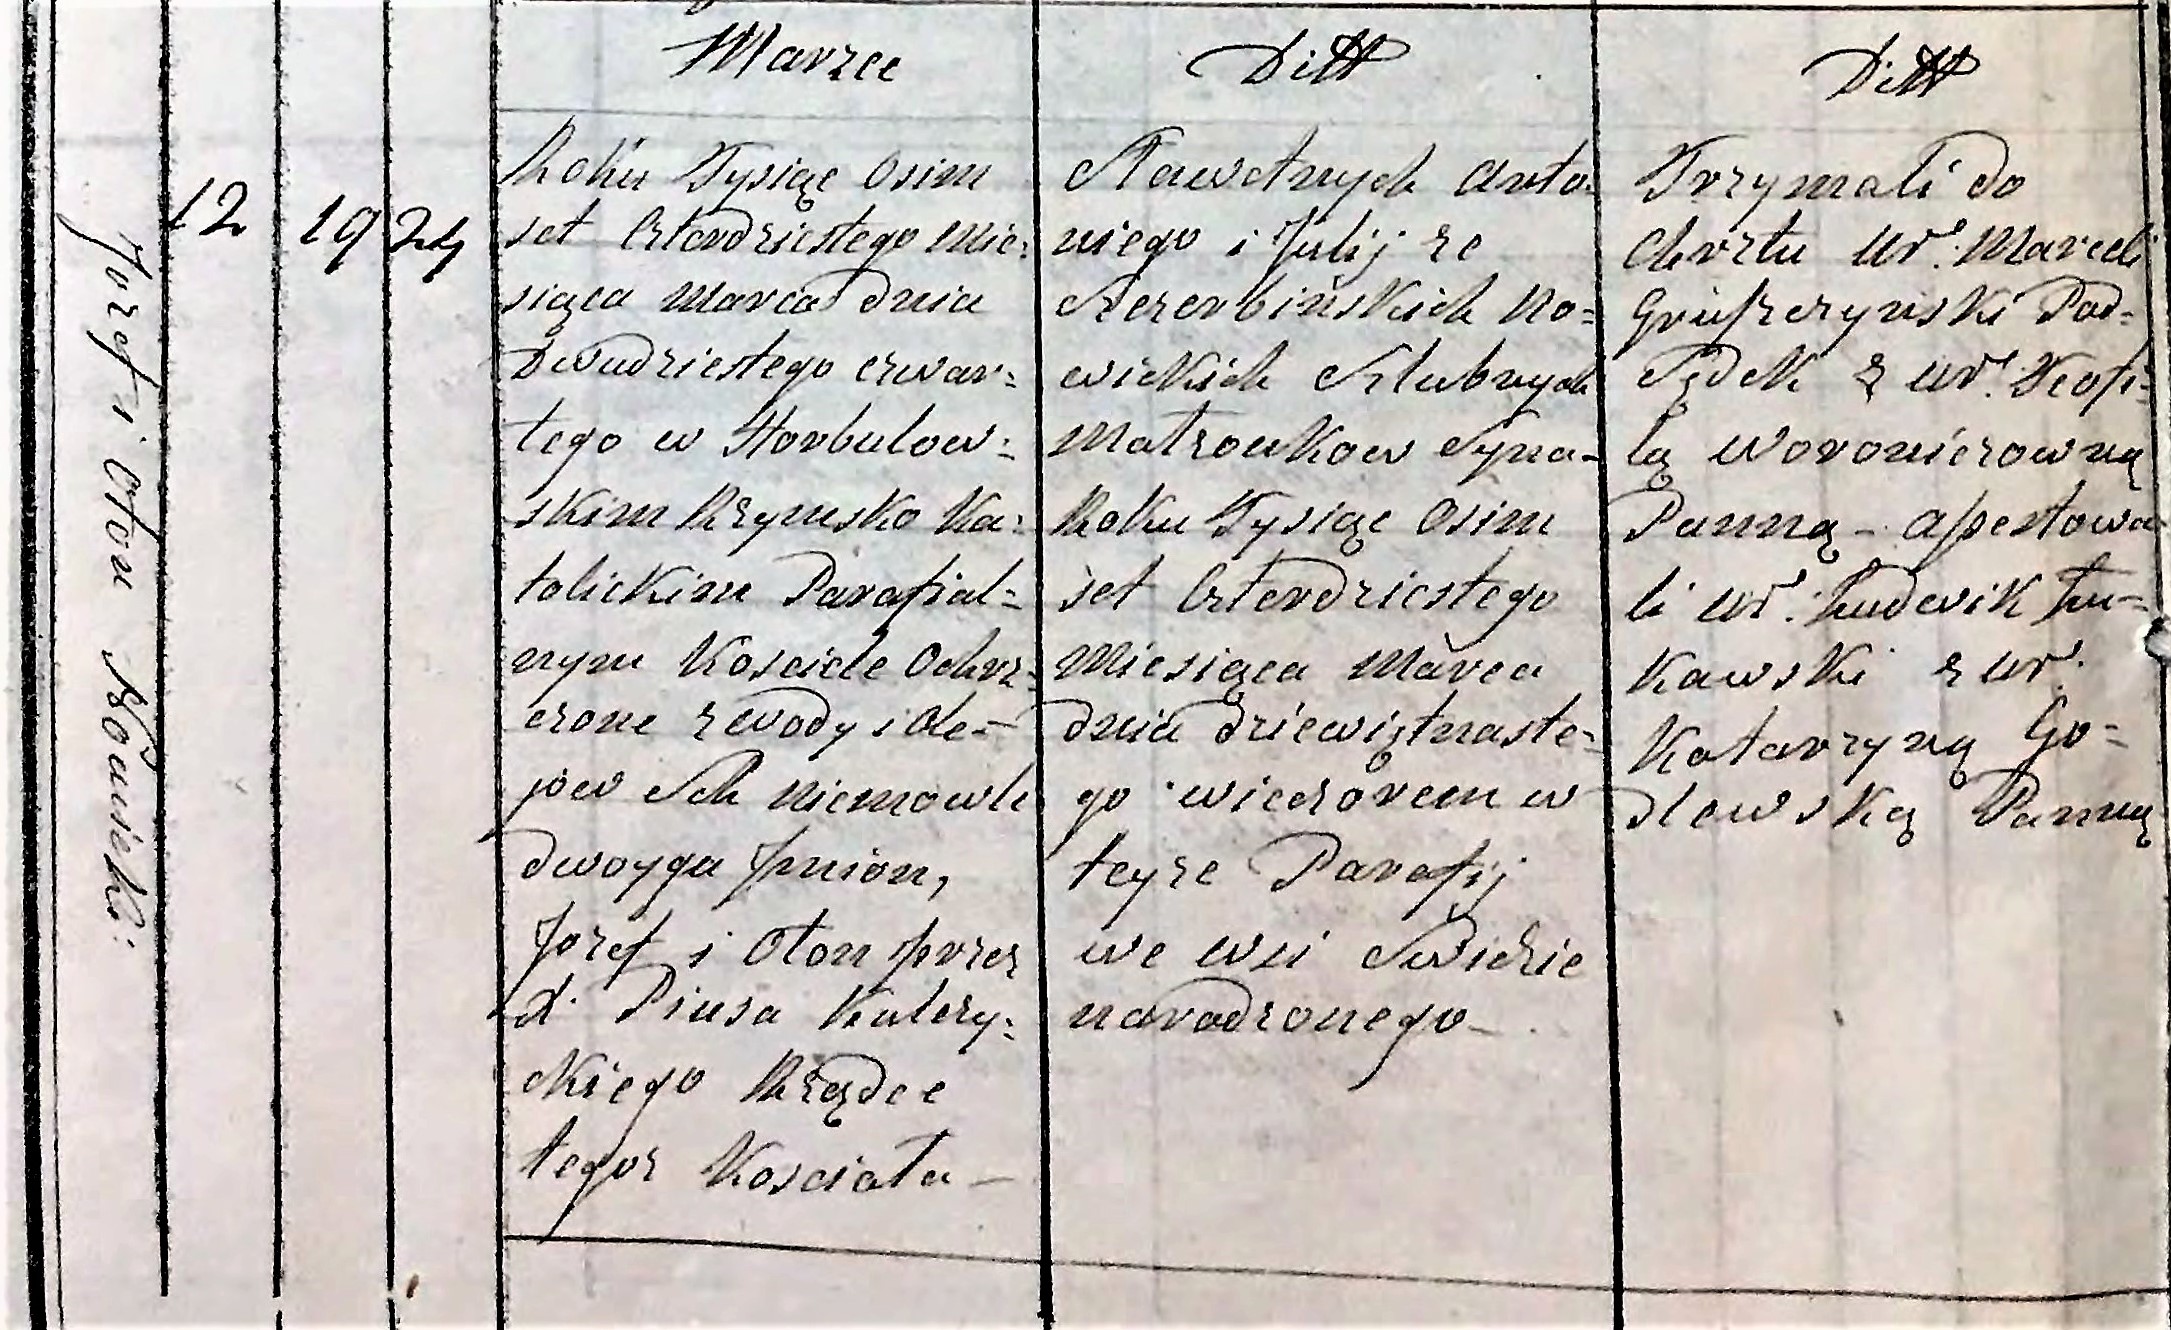 Marzec
Ditt
Ditt
12
19
24
Jozef i Oton Nowicki.
Roku Tysiąc Osim
set Czterdziestego Mie:
siąca Marca dnia
Dwudziestego czwar:
tego w Horbulow:
skim Rzymsko Ka:
tolickim Parafial=
nym Kosciele Ochrz:
czone z wody i Ole–
jow SSch Niemowle
dwoyga Jmion,
Jozef i Oton przez
X. Piusa Kulczy:
ckiego Rządce
tegoż Kosciała –
Slawetnych Anto:
niego i Julij ze
Szczerbińskich No=
wickich Szlubnych
Małzonkow Syna–
Roku Tysiąc Osim
set Czterdziestego
Miesiąca Marca
dnia dziewiętnaste=
go wieczorem w
teyże Parafij
we wsi Swidzie
narodzonego–
Trzymali do
chrztu Ur. Marceli
Pod=
Sędek z Ur. Teofi=
lą Woroniczowną
Panną – assestowa
li Ur. Ludwik Łu–
kawski z Ur.
Katarzyną Go=
dlewską Panną